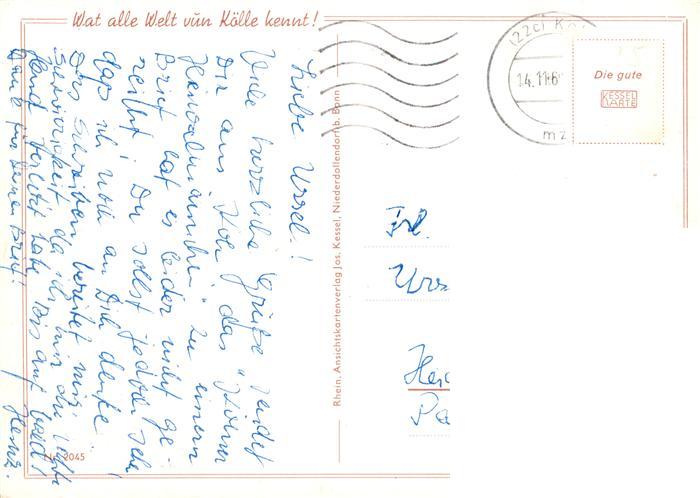 Wat alle Welt vun Kölle kennt!
Liebe Ursel!
Viele herzliche Grüße sendet
Dir aus Köln das "Kölner
Heinzelmännchen" Zu einem
Brief hat es leider nicht ge-
reicht. Du sollst jedoch sehen
daß ich noch an Dich denke
Das Schreiben bereitet mir
Schwierigkeit da ich mir die rechte
Hand verletzt habe. Bis auf bald!
Dank für Deinen Brief! Heinz.
Nr. 2045
Rhein. Ansichtskartenverlag Jos. Kessel, Niederdollendorf b. Bonn
(22c) K
14.11.6
mz
Die gute
KESSEL
KARTE
Frl.
Urs
Hei
Pa